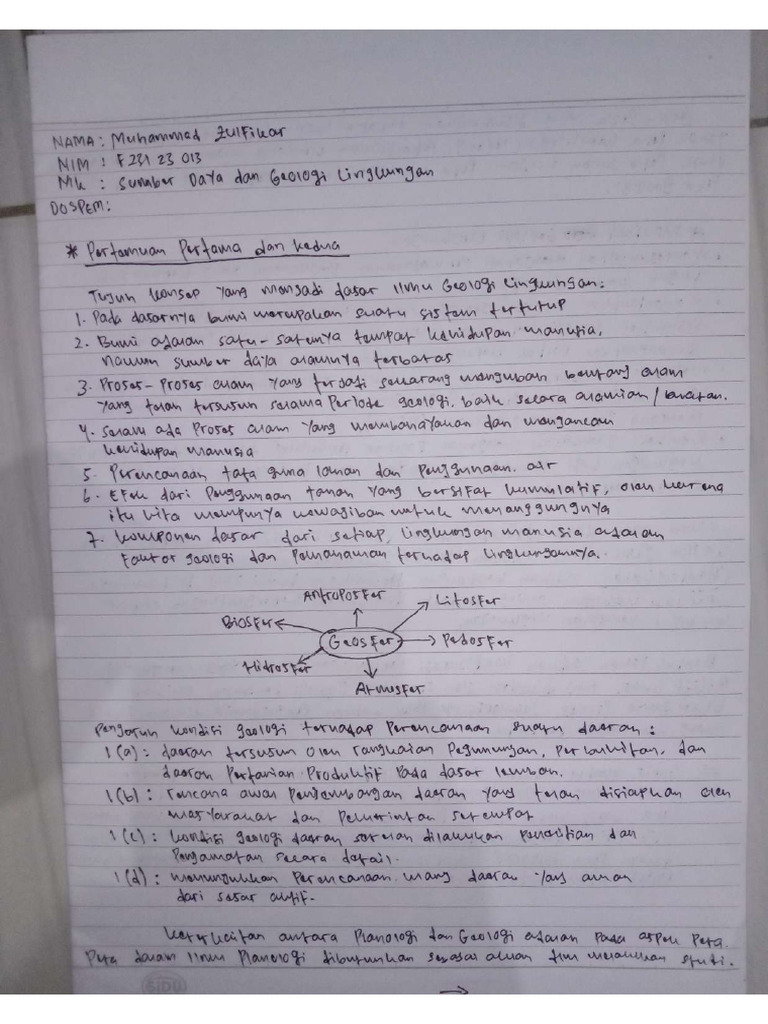 NAMA : Muhammad Zulfikar
NIM : F231 23 013
MK : Sumber Daya dan Geologi Lingkungan
DOSPEM :
* Pertemuan Pertama dan Kedua
Tujuh konsep yang menjadi dasar ilmu Geologi Lingkungan :
1. Pada dasarnya bumi merupakan suatu sistem tertutup
2. Bumi adalah satu-satunya tempat kehidupan manusia,
namun sumber daya alamnya terbatas
3. Proses-Proses alam yang terjadi sekarang mengubah bentang alam
yang telah tersusun selama Periode geologi, baik secara alamiah /
4. Selalu ada Proses alam yang membahayakan dan mengancam
kehidupan manusia
5. Perencanaan tata guna lahan dan penggunaan air
6. Efek dari Penggunaan tanah yang bersifat kumulatif, oleh karena
itu kita mempunya kewajiban untuk menanggungnya
7. Komponen dasar dari setiap lingkungan manusia adalah
faktor geologi dan Pemahaman terhadap lingkungannya.
Antroposfer
Litosfer
Biosfer
Geosfer
Pedosfer
Hidrosfer
Atmosfer
Pengaruh kondisi geologi terhadap Perencanaan suatu daerah :
1(a) : daerah tersusun oleh rangkaian Pegunungan, Perbukitan, dan
daerah Pertanian Produktif Pada dasar lembah.
1(b) : rencana awal Pengembangan daerah yang telah disiapkan oleh
masyarakat dan Pemerintah setempat
1(c) : kondisi geologi daerah setelah dilakukan penelitian dan
Pengamatan secara detail.
1(d) : menunjukkan Perencanaan ulang daerah yang aman
dari sesar aktif.
Keterkaitan antara Planologi dan Geologi adalah Pada aspek Peta.
Peta dalam ilmu Planologi dibutuhkan sebagai acuan tim melakukan studi.
SIDU